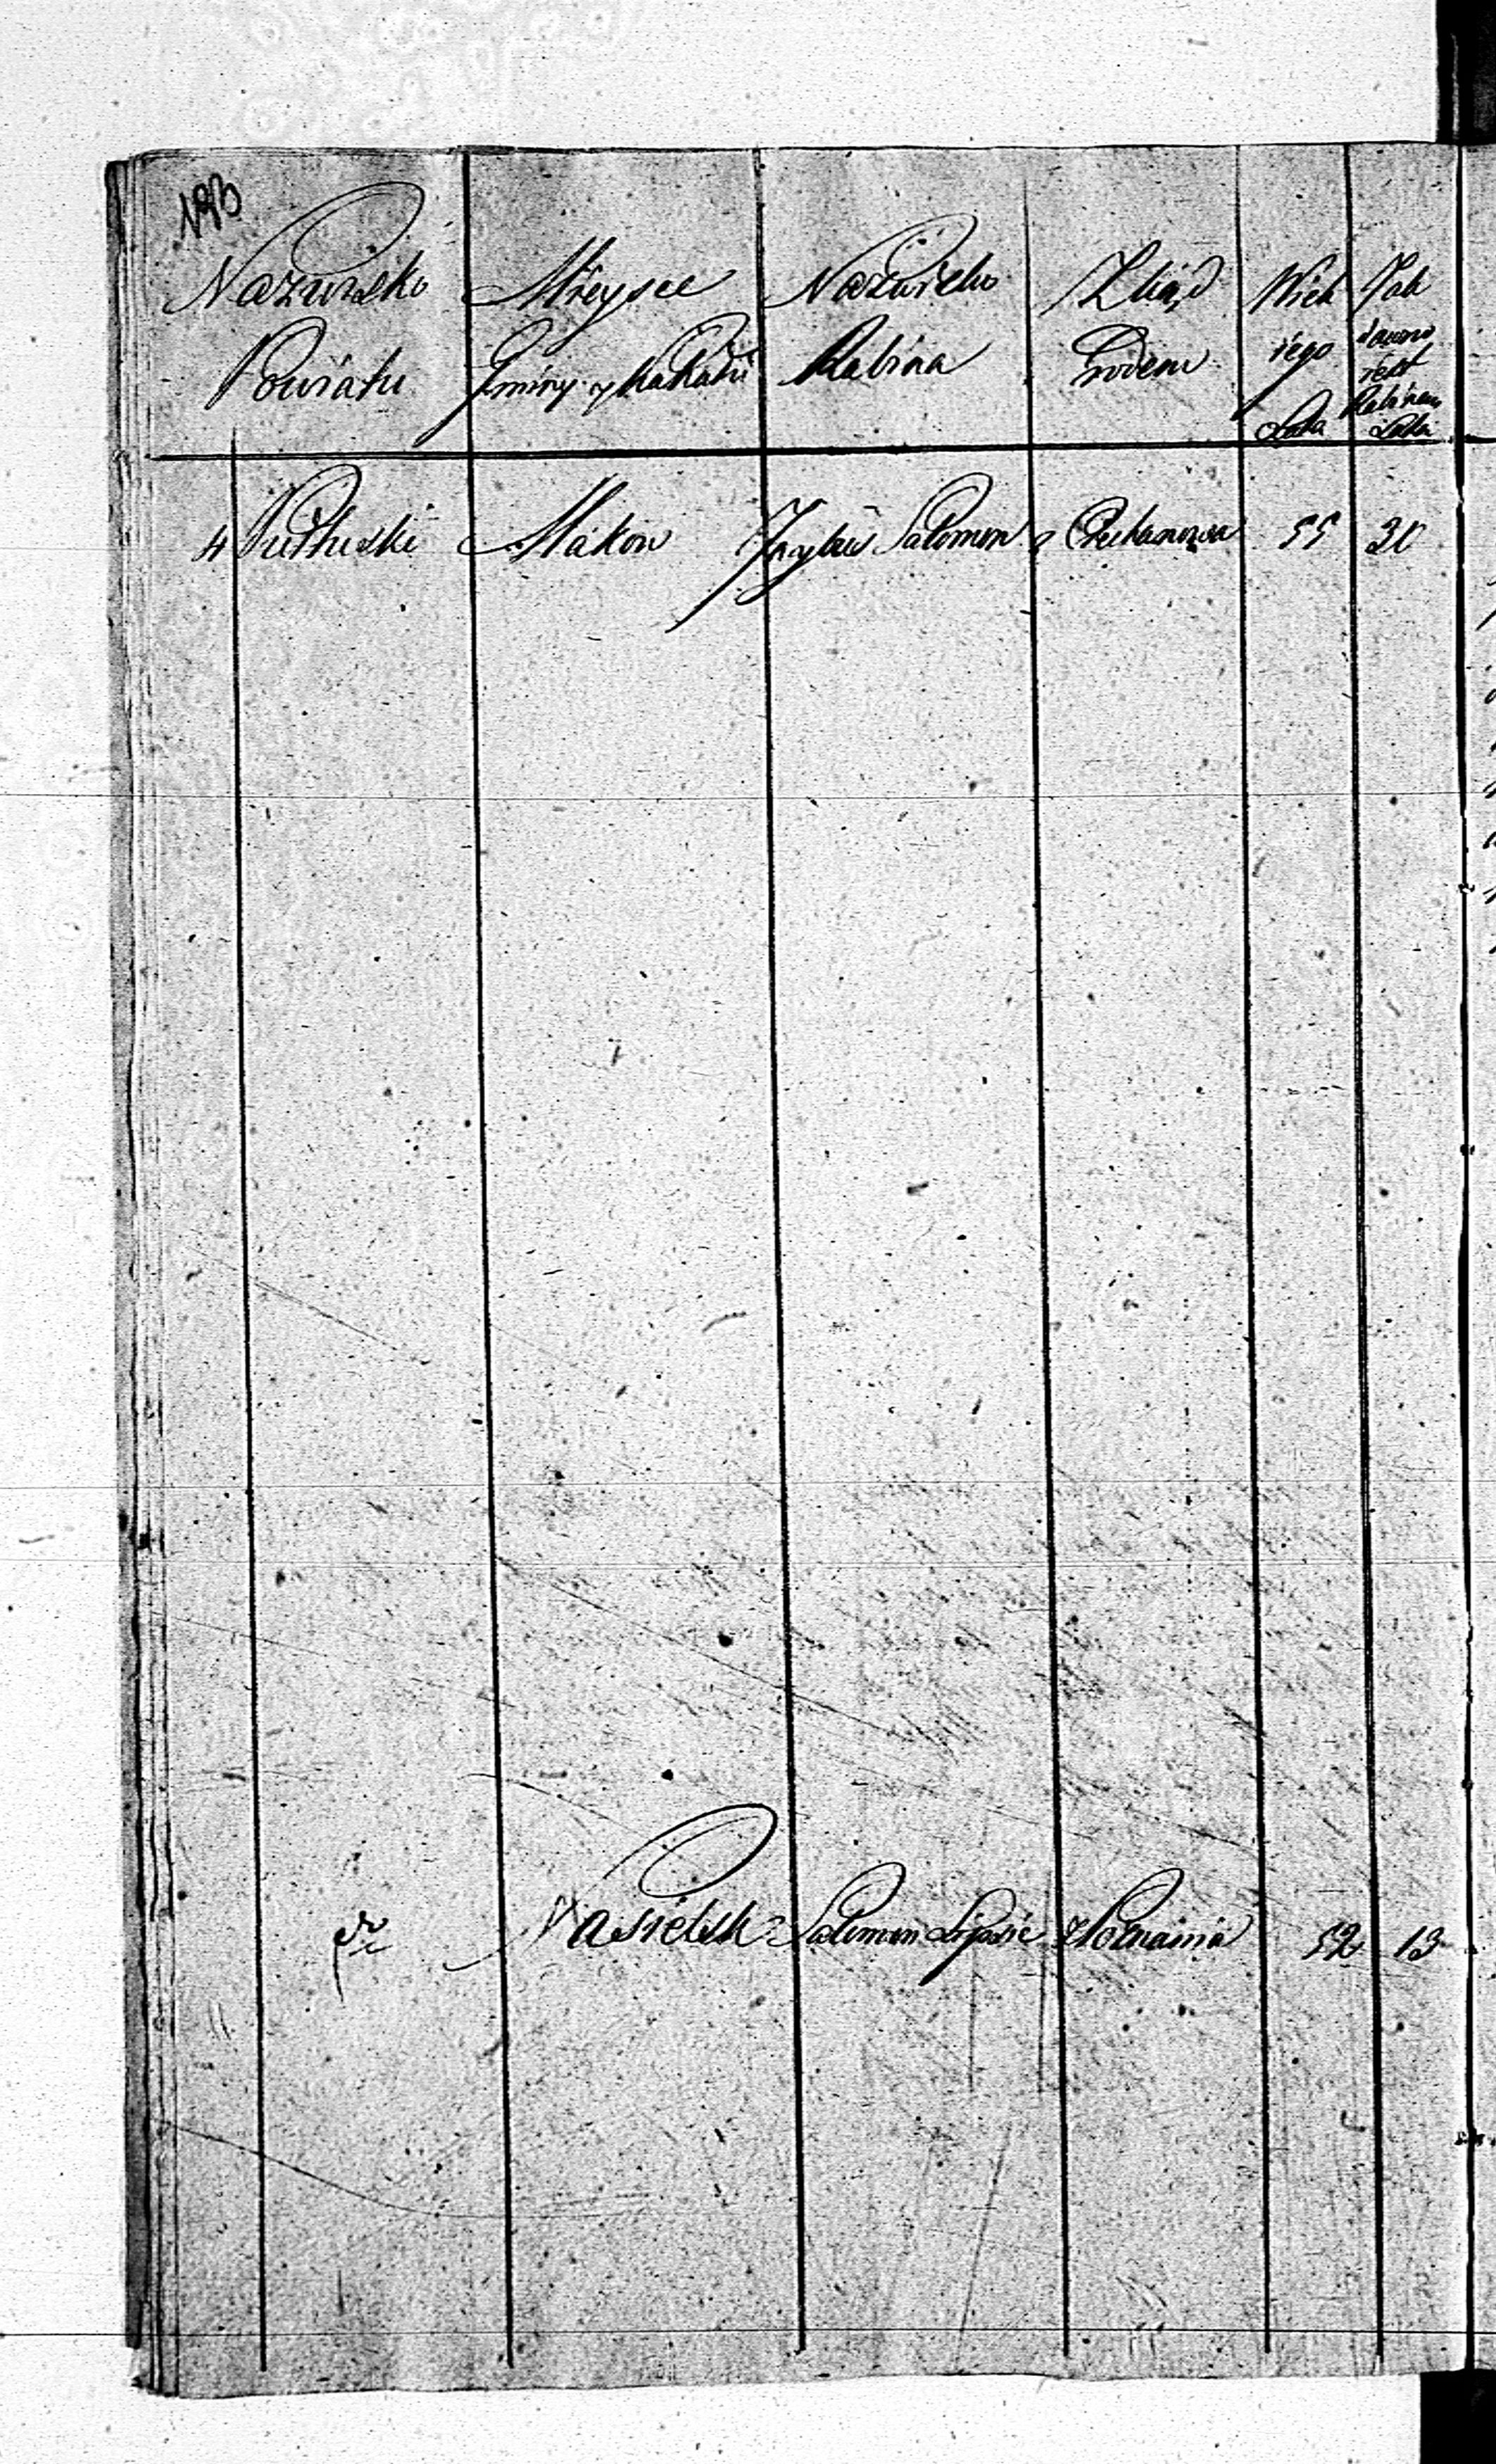 193
Nazwisko Powiatu
Mieysce Gminy y Kahału
Nazwisko Rabina
Zkąd Rodem
Wiek iego Lata
Jak dawno iest Rabinem Lata
4 Pułtuski Makow Salomon z Ciechanowa 55 30
Nasielsk Salomon Lipsic z Poznania 52 13